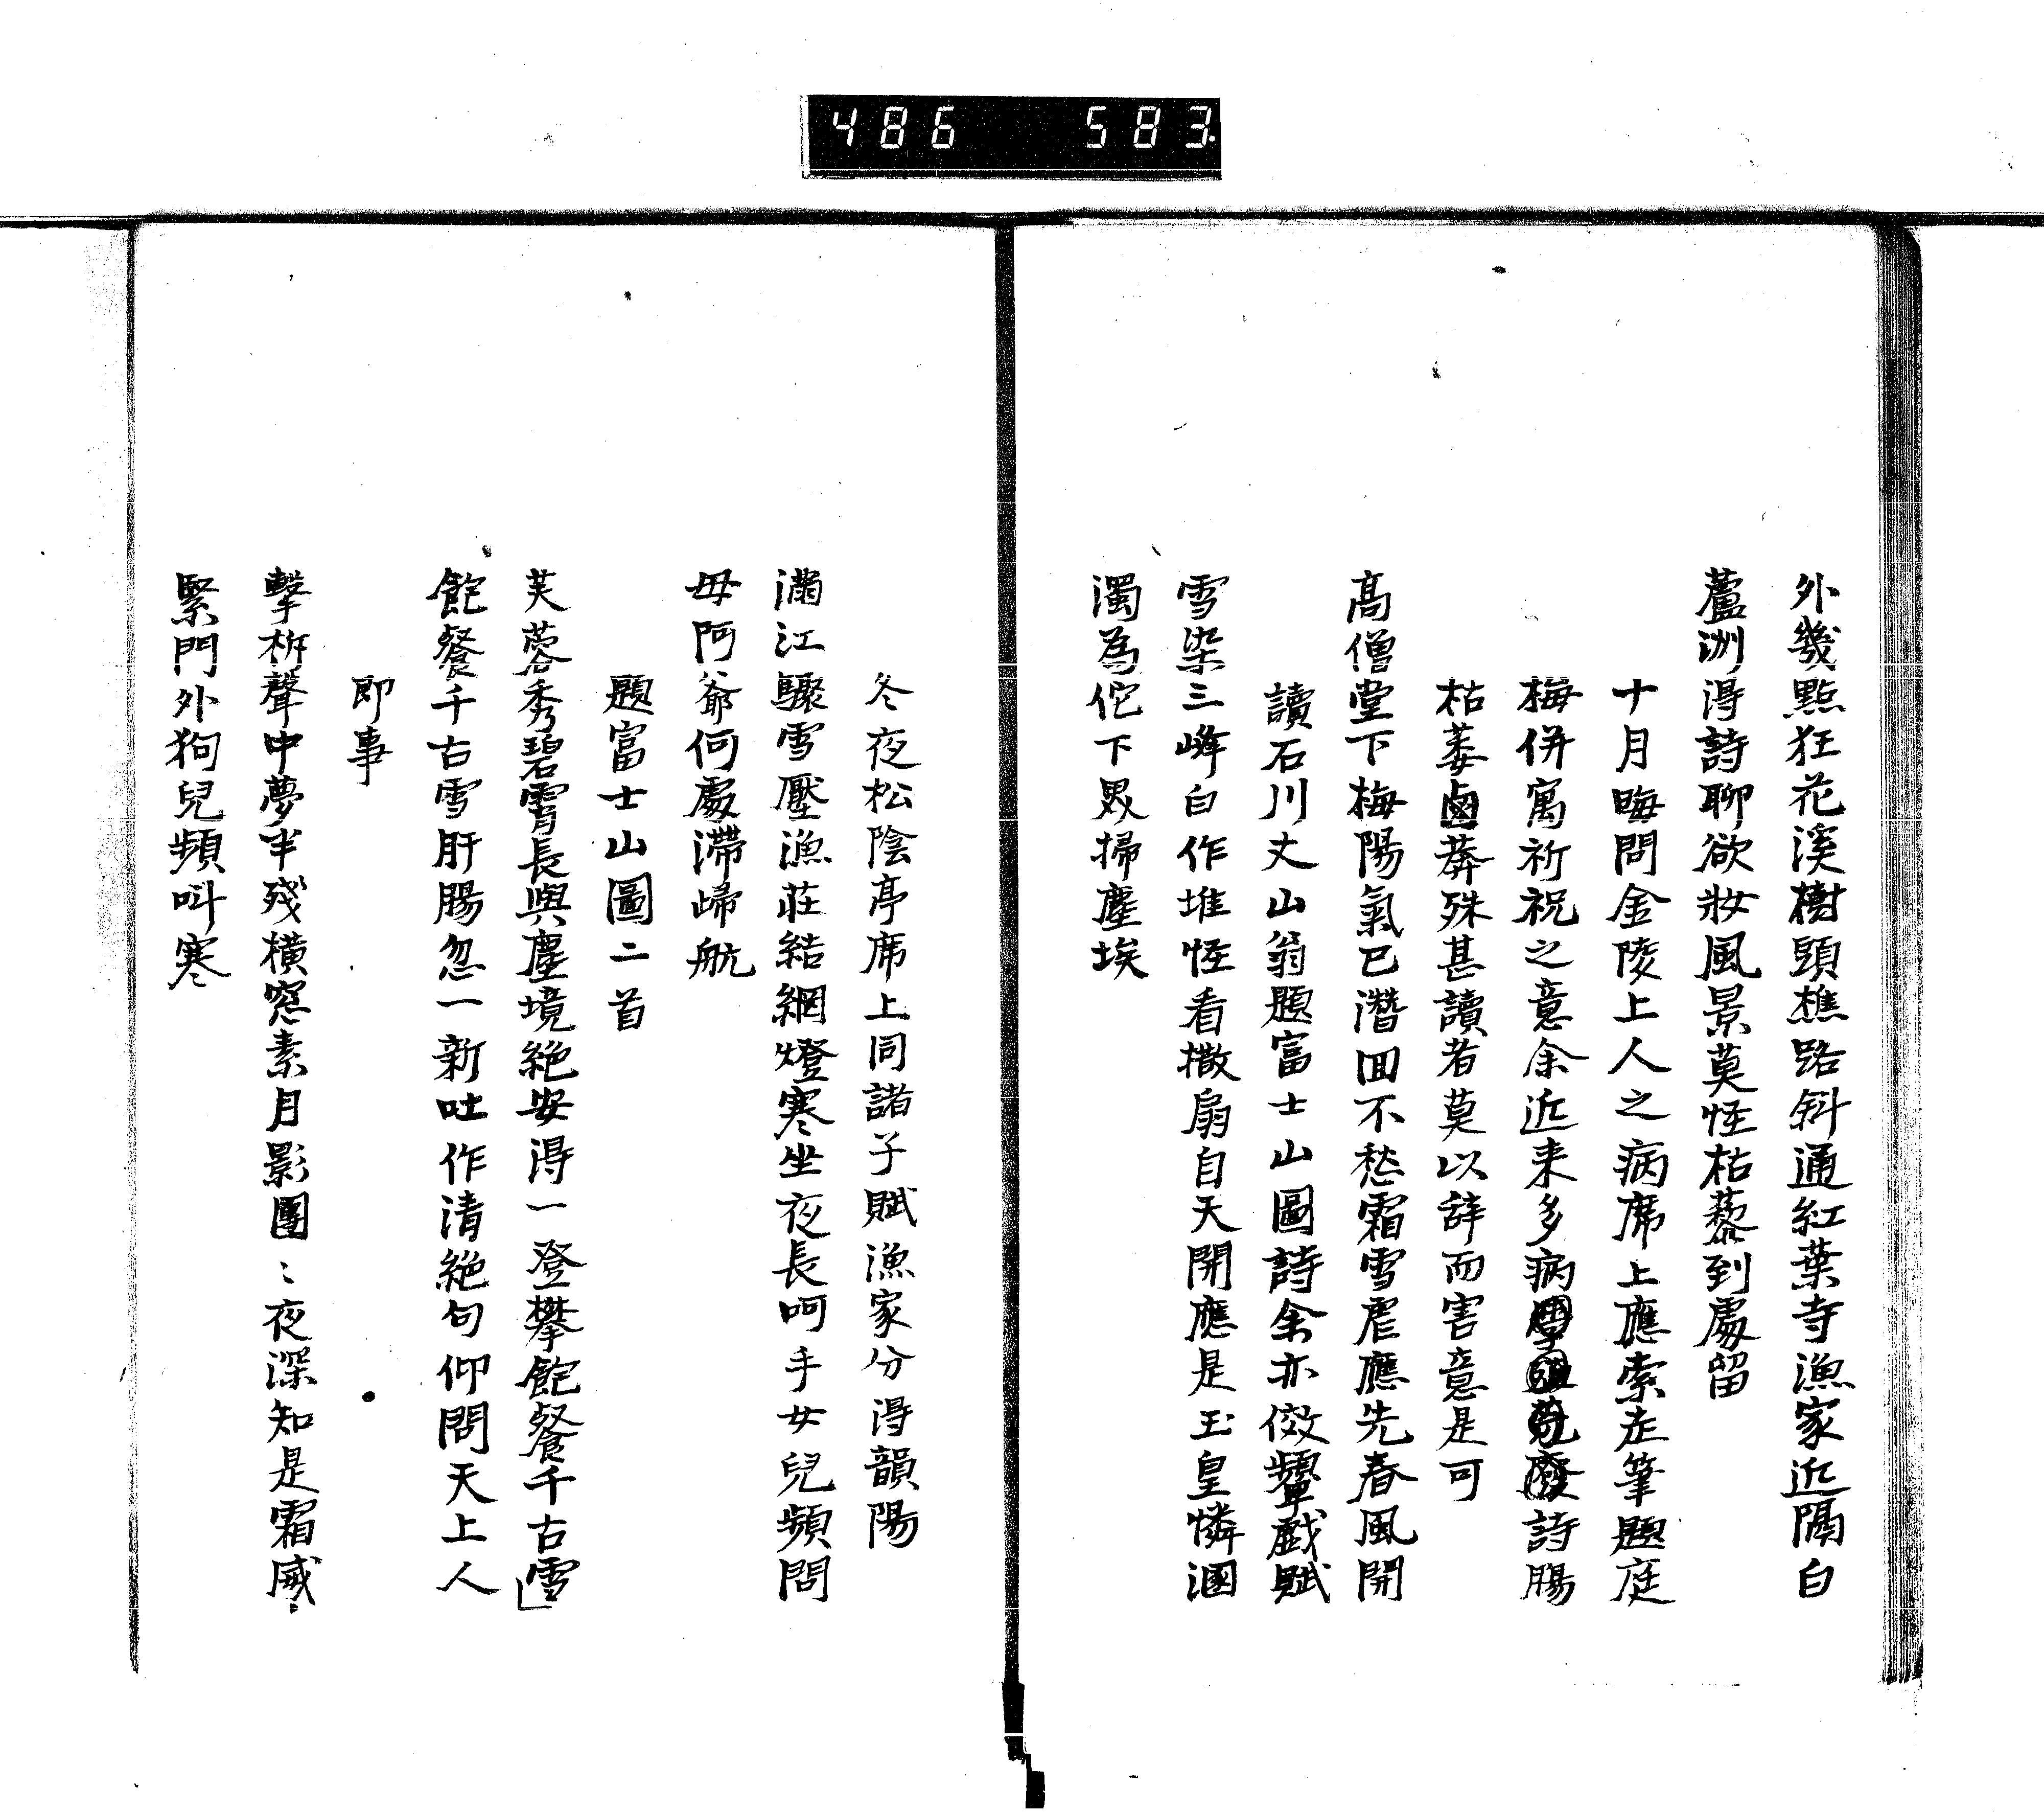 486 583
外幾點狂花溪樹頭樵路斜通紅葉寺漁家近隔白
蘆洲得詩聊欲妝風景莫怪枯藜到處留
十月晦問金陵上人之病席上應索走筆題庭
梅併寓祈祝之意余近来多病廢詩腸
枯萎鹵莽殊甚讀者莫以辞而害意是可
高僧堂下梅陽氣已潛回不愁霜雪虐應先春風開
讀石川丈山翁題富士山圖詩余亦傚顰戯賦
雪染三峰白作堆怪看撒扇自天開應是玉皇憐溷
濁為佗下界掃塵埃
冬夜松陰亭席上同諸子賦漁家分得韻陽
滿江驟雪壓漁莊結網燈寒坐夜長呵手女兒頻問
母阿爺何處滯歸航
題富士山圖二首
芙蓉秀碧霄長與塵境絕安得一登攀飽餐千古雪」
飽餐千古雪肝腸忽一新吐作清絕句仰問天上人
即事
擊柝聲中夢半殘橫窓素月影團〻夜深知是霜威
緊門外狗兒頻叫寒